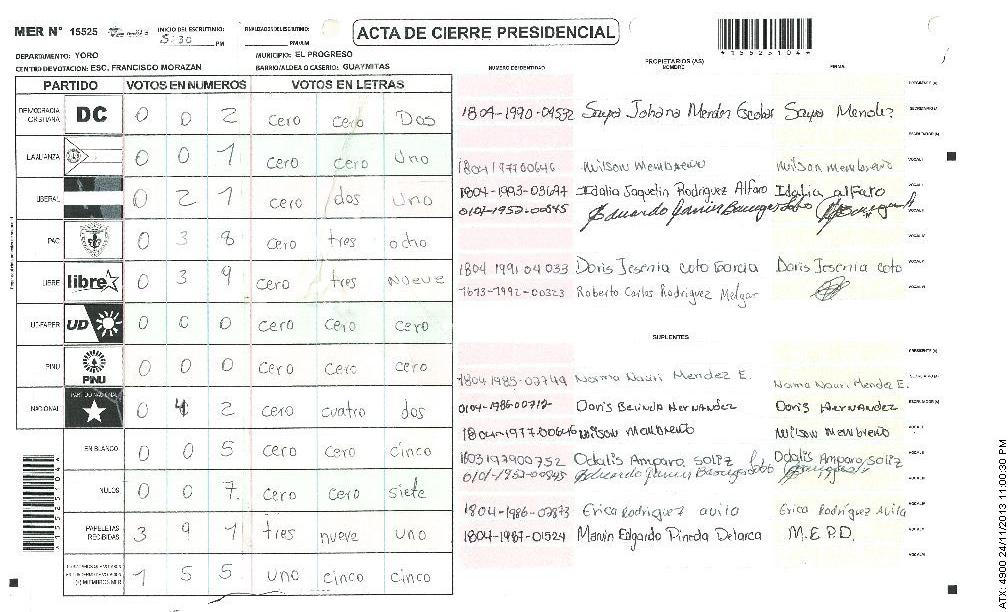 MER N° 15525 INICIO DEL ESCRUTINIO: 5:30 PM FINALIZADO EL ESCRUTINIO: PM/AM ACTA DE CIERRE PRESIDENCIAL
*1552504*
DEPARTAMENTO: YORO MUNICIPIO: EL PROGRESO
CENTRO DE VOTACION: ESC. FRANCISCO MORAZAN BARRIO/ALDEA O CASERIO: GUAYMITAS
NUMERO DE IDENTIDAD PROPIETARIOS (AS) NOMBRE FIRMA
PARTIDO VOTOS EN NUMEROS VOTOS EN LETRAS
DEMOCRACIA CRISTIANA DC 0 0 2 cero cero Dos
LA ALIANZA 0 0 1 cero cero uno
LIBERAL 0 2 1 cero dos uno
PAC 0 3 8 cero tres ocho
LIBRE libre 0 3 9 cero tres Nueve
UD-FAPER UD 0 0 0 cero cero cero
PINU PINU 0 0 0 cero cero cero
NACIONAL PARTIDO NACIONAL 0 4 2 cero cuatro dos
EN BLANCO 0 0 5 cero cero cinco
NULOS 0 0 7. cero cero siete
PAPELETAS RECIBIDAS 3 9 1 tres nueve uno
1 5 5 uno cinco cinco
1804-1990-04532 Sayra Johana Mendez Escobar Sayra Mendez
1804 1977 00646 Wilson Membreño Wilson Membreño
1804-1993-03697 Idalia Jaquelin Rodriguez Alfaro Idalia alfaro
0101-1952-00845 Eduardo
1804 1991 04 033 Doris Jesenia coto Garcia Doris Jesenia coto
1613-1992-00323 Roberto Carlos Rodriguez Melgar
SUPLENTES
1804-1985-03749 Norma Nauri Mendez E. Norma Nauri Mendez E.
0104-1986-00712 Doris Belinda HerNANdez Doris HerNANdez
1804-1977-00646 Wilson Membreño Wilson Membreño
1803197900752 Odalis Amparo soliz Odalis Amparo soliz
0101-1952-00845 Eduardo
1804-1986-02873 Erica Rodriguez avila Erica Rodriguez Avila
1804-1987-01524 Marvin Edgardo Pineda Delarca M.E.P.D.
*1552504*
ATX: 4900 24/11/2013 11:00:30 PM